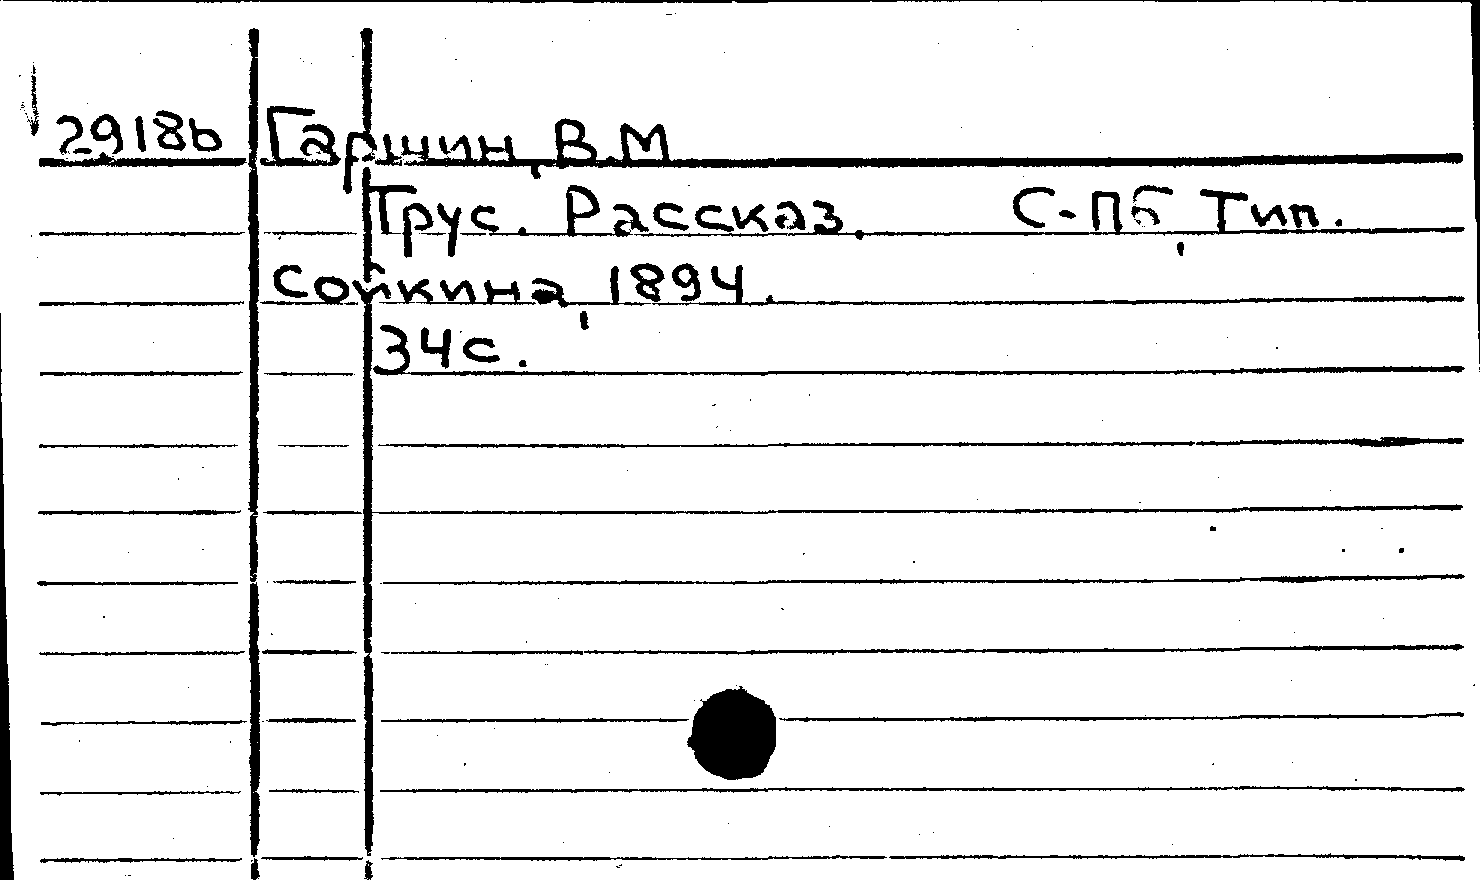 2918b Гаршин, В.М
Трус. Рассказ. С-Пб, Тип.
Сойкина, 1894.
34с.